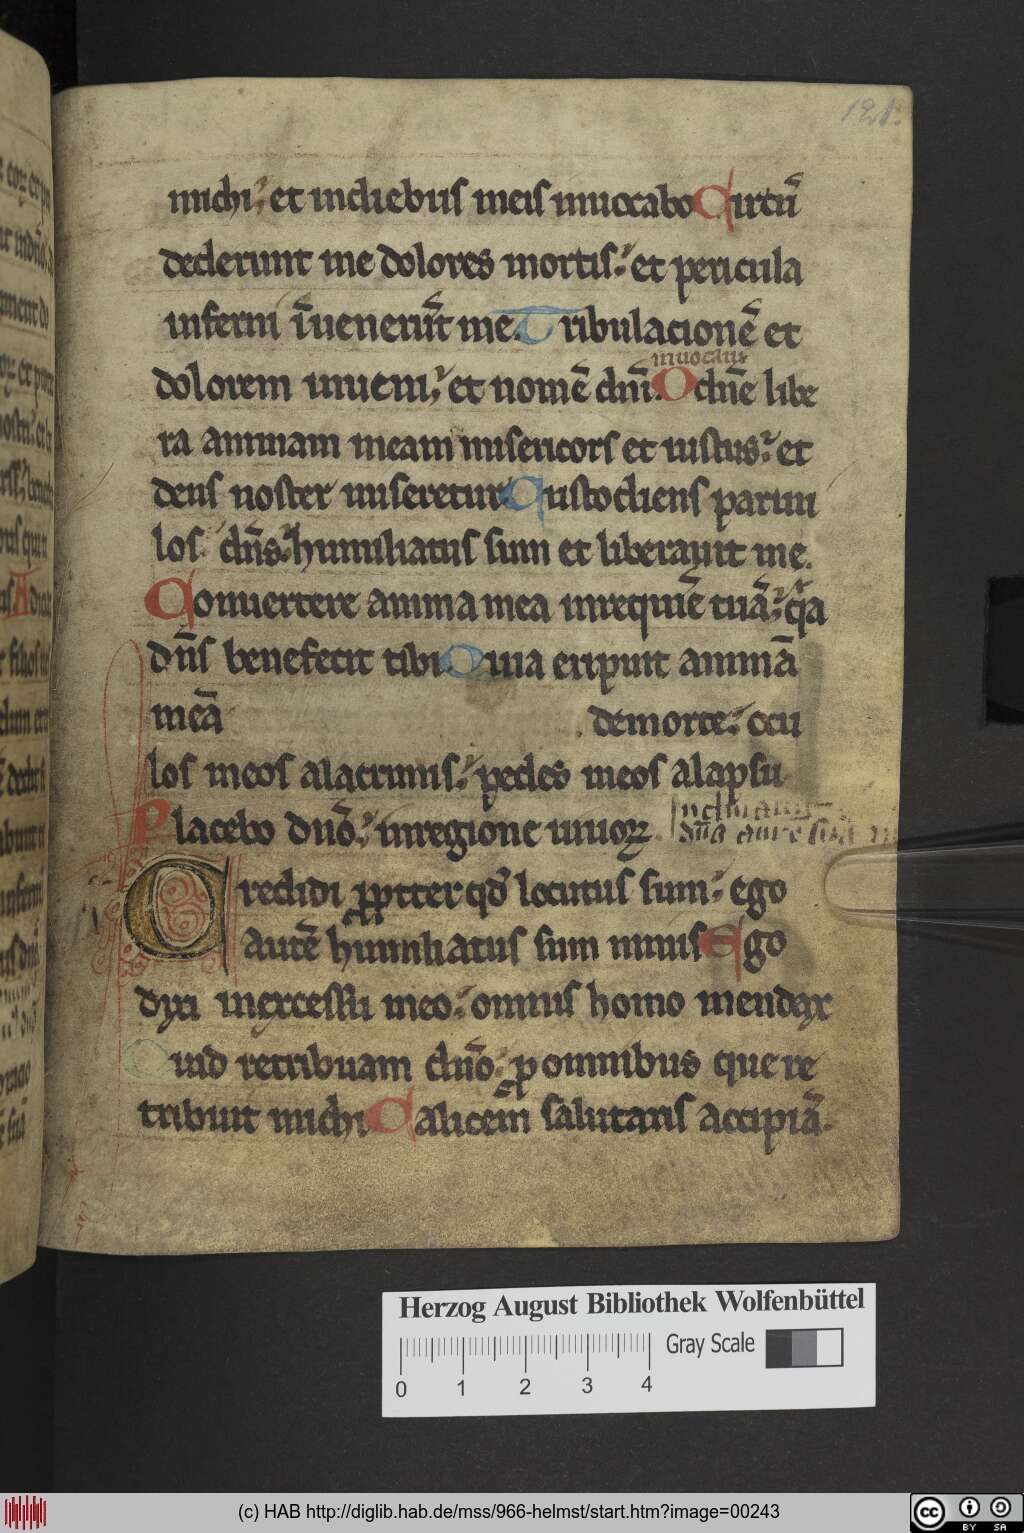 michi; et in diebus meis inuocabo Circū
dederunt me dolores mortis: et pericula
inferni īuenerūt me. Tribulacionē et
dolorem inueni; et nomē dn̄i inuocaui
O dn̄e libe
ra animam meam misericors et iustus: et
deus noster miseretur Custodiens paruu
los dn̄s: humiliatus sum et liberauit me.
Conuertere anima mea in requiē tuā: q̄a
dn̄s benefecit tibi Quia eripuit animā
meā de morte: ocu
los meos a lacrimis: pedes meos a lapsu
Placebo dn̄o: in regione uiuoꝝ Inclinauit
dn̄s aure suā m
Credidi ꝓpter qd̄ locutus sum: ego
autē humiliatus sum nimis Ego
dixi in excessu meo: omnis homo mendax
Quid retribuam dn̄o: ꝓ omnibus que re
tribuit michi Calicem salutaris accipiā.
Herzog August Bibliothek Wolfenbüttel
Gray Scale
0 1 2 3 4
(c) HAB http://diglib.hab.de/mss/966-helmst/start.htm?image=00243
cc BY SA